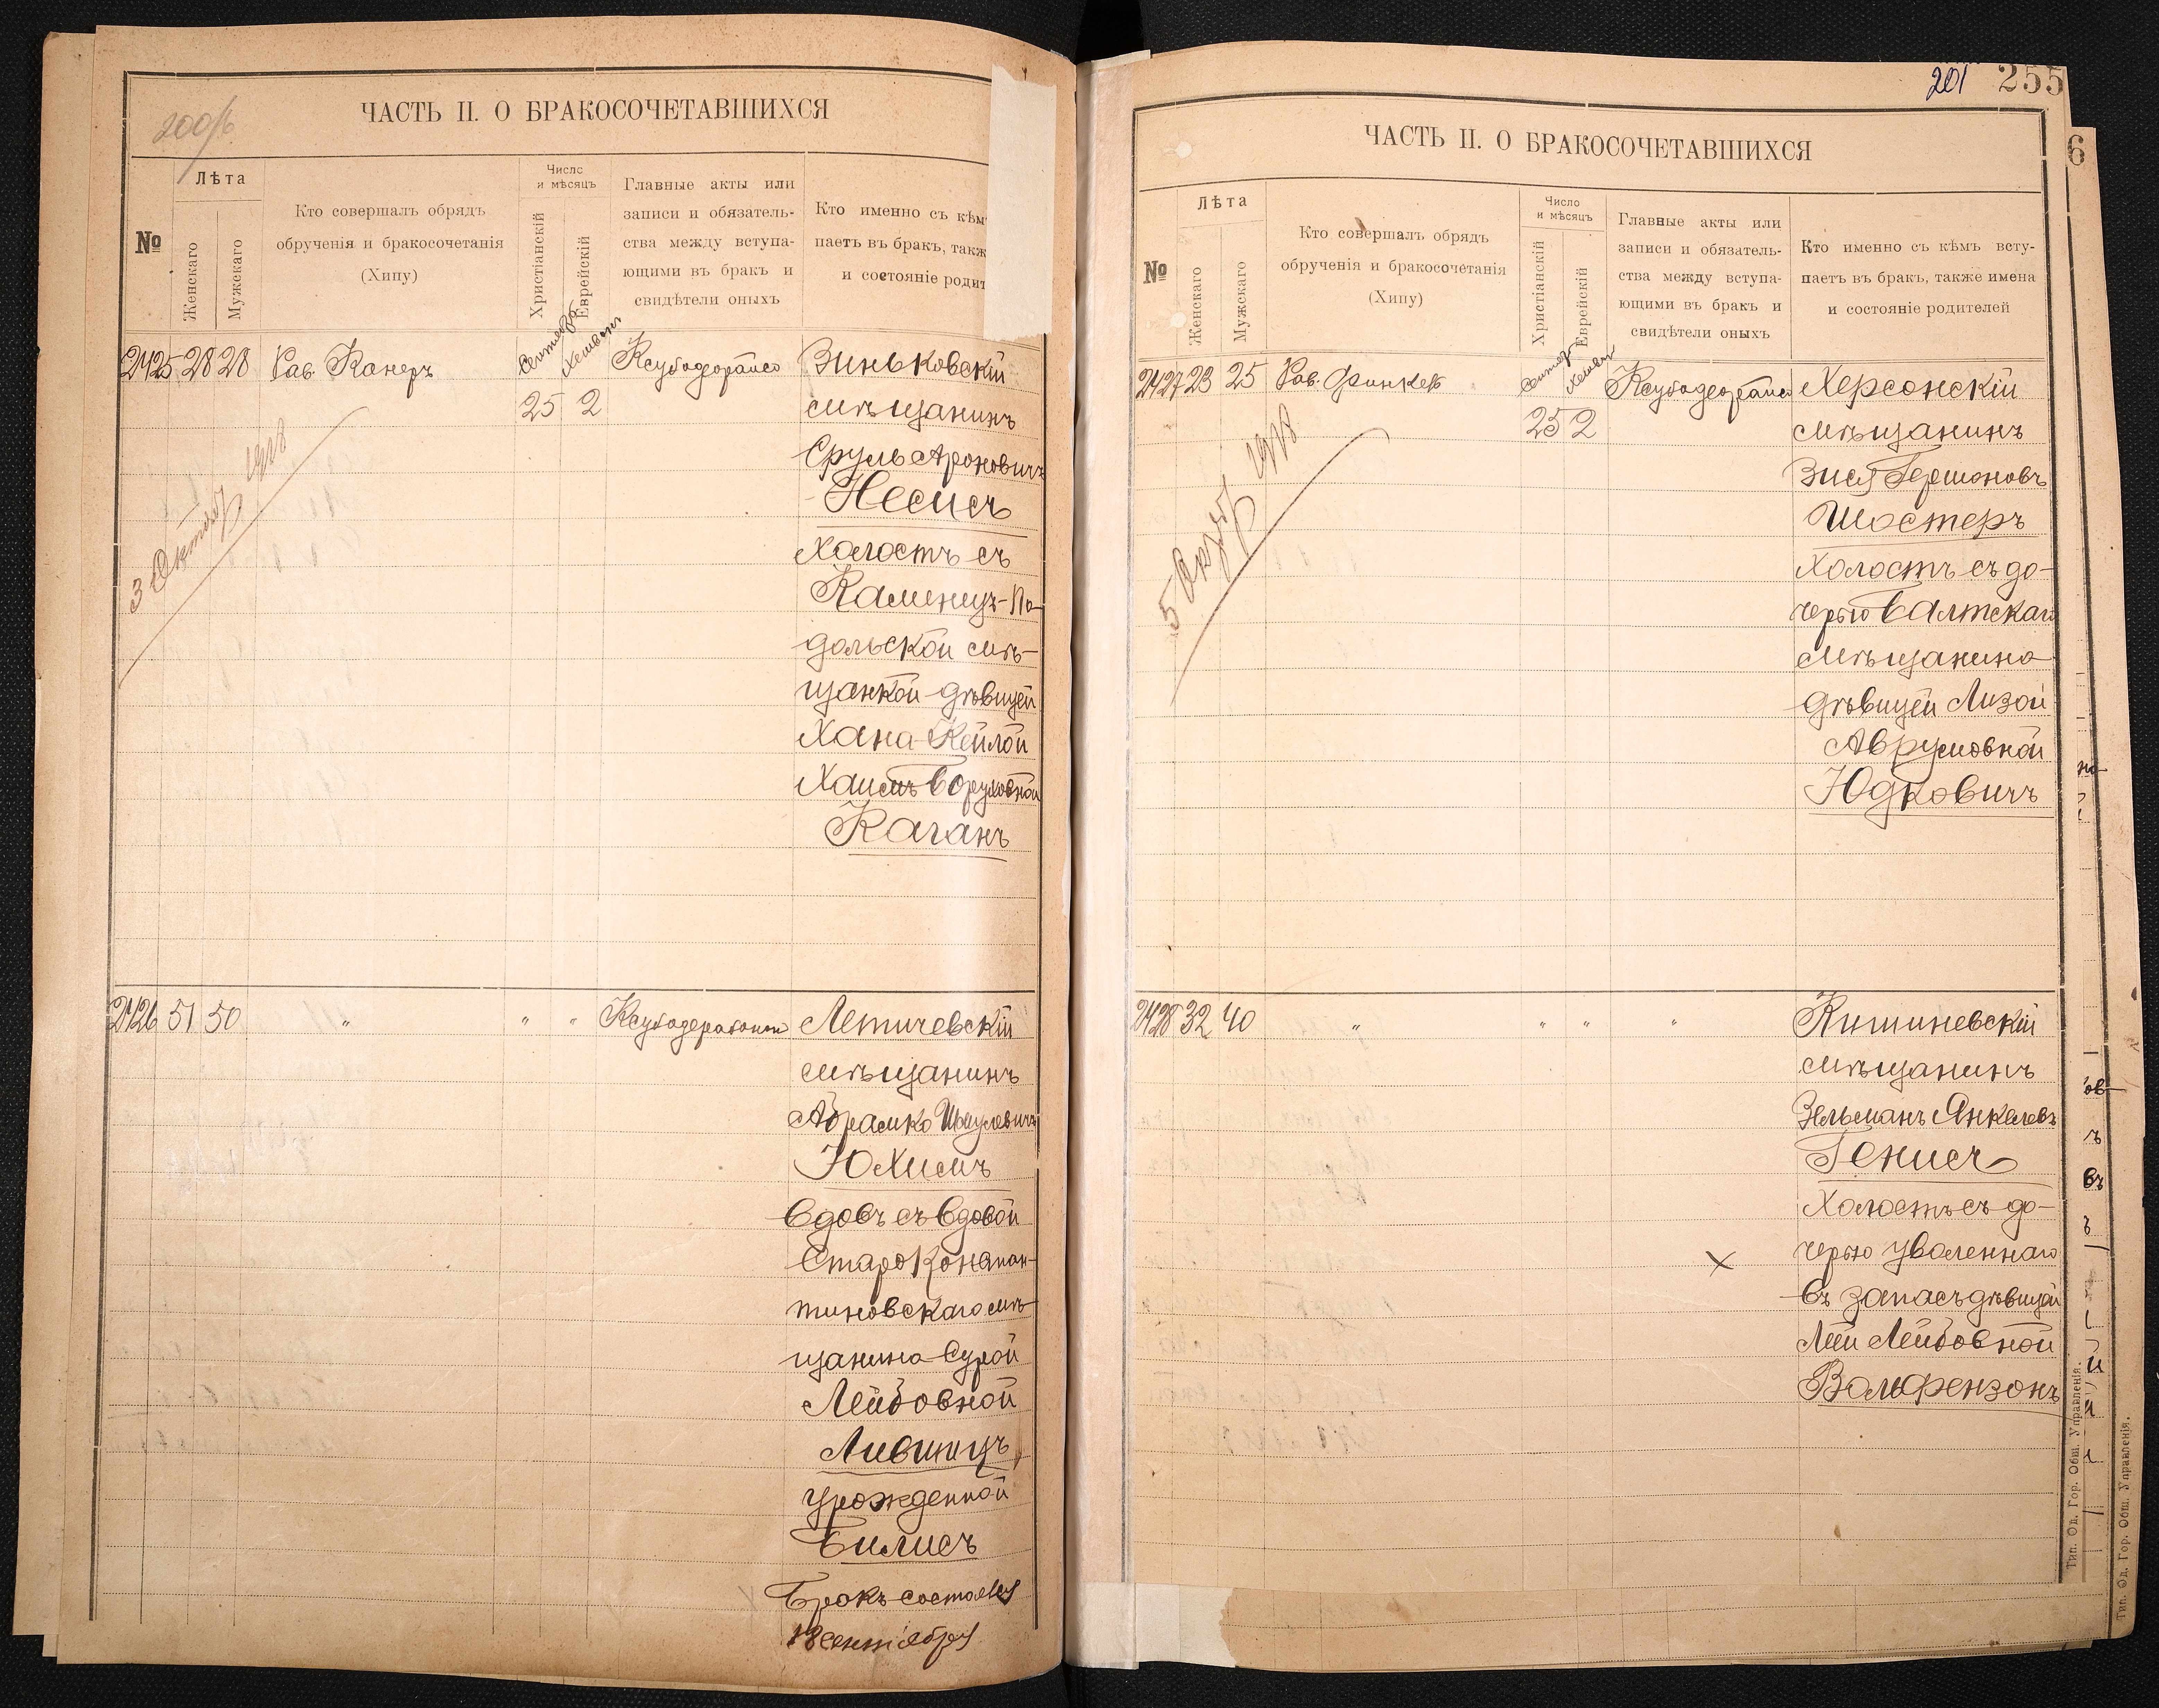 200/б
ЧАСТЬ II. О БРАКОСОЧЕТАВШИХСЯ
№
Лѣта
Женскаго
Мужскаго
Кто совершалъ обрядъ
обрученія и бракосочетанія
(Хипу)
Число
и мѣсяцъ
Христіанскій
Еврейскій
Главные акты или
записи и обязатель-
ства между вступа-
ющими въ бракъ и
свидѣтели оныхъ
Кто именно съ кѣмъ
паетъ въ бракъ, такж
и состояніе родит
2425 28 28 Рав. Канеръ
25 2
Зиньковскій
мѣщанинъ
Сруль Ароновичъ
Несисъ
холостъ съ
Каменец-По-
дольской мѣ-
щанкой дѣвицей
Хана-Кейлой
Хаимъ-Боруховной
Каганъ
3 Октября 1918
2426 51 50 " " "
Летичевскій
мѣщанинъ
Абрамко Шмулевичъ
Юхимъ
Вдовъ съ вдовой
Староконстан-
тиновскаго мѣ-
щанина Сурой
Лейбовной
Лившицъ,
урожденной
Билисъ
Бракъ состоялся
18 сентября
201 255
ЧАСТЬ II. О БРАКОСОЧЕТАВШИХСЯ
№
Лѣта
Женскаго
Мужскаго
Кто совершалъ обрядъ
обрученія и бракосочетанія
(Хипу)
Число
и мѣсяцъ
Христіанскій
Еврейскій
Главные акты или
записи и обязатель-
ства между вступа-
ющими въ бракъ и
свидѣтели оныхъ
Кто именно съ кѣмъ всту-
паетъ въ бракъ, также имена
и состояніе родителей
2427 23 25 Рав. Финкель
25 2
Херсонскій
мѣщанинъ
Зися Гершоновъ
Шостеръ
холостъ съ до-
черью Балтскаго
мѣщанина
дѣвицей Лизой
Аврумовной
Юдковичъ
1918
2428 32 40 " " " "
Кишиневскій
мѣщанинъ
Зельманъ Янкелевъ
Генисъ
Холостъ съ до-
черью уволеннаго
въ запасъ дѣвицей
Леей Лейбовной
Вольфензонъ
Тип. Од. Гор. Общ. Управленія.
6
Тип. Од. Гор. Общ. Управленія.